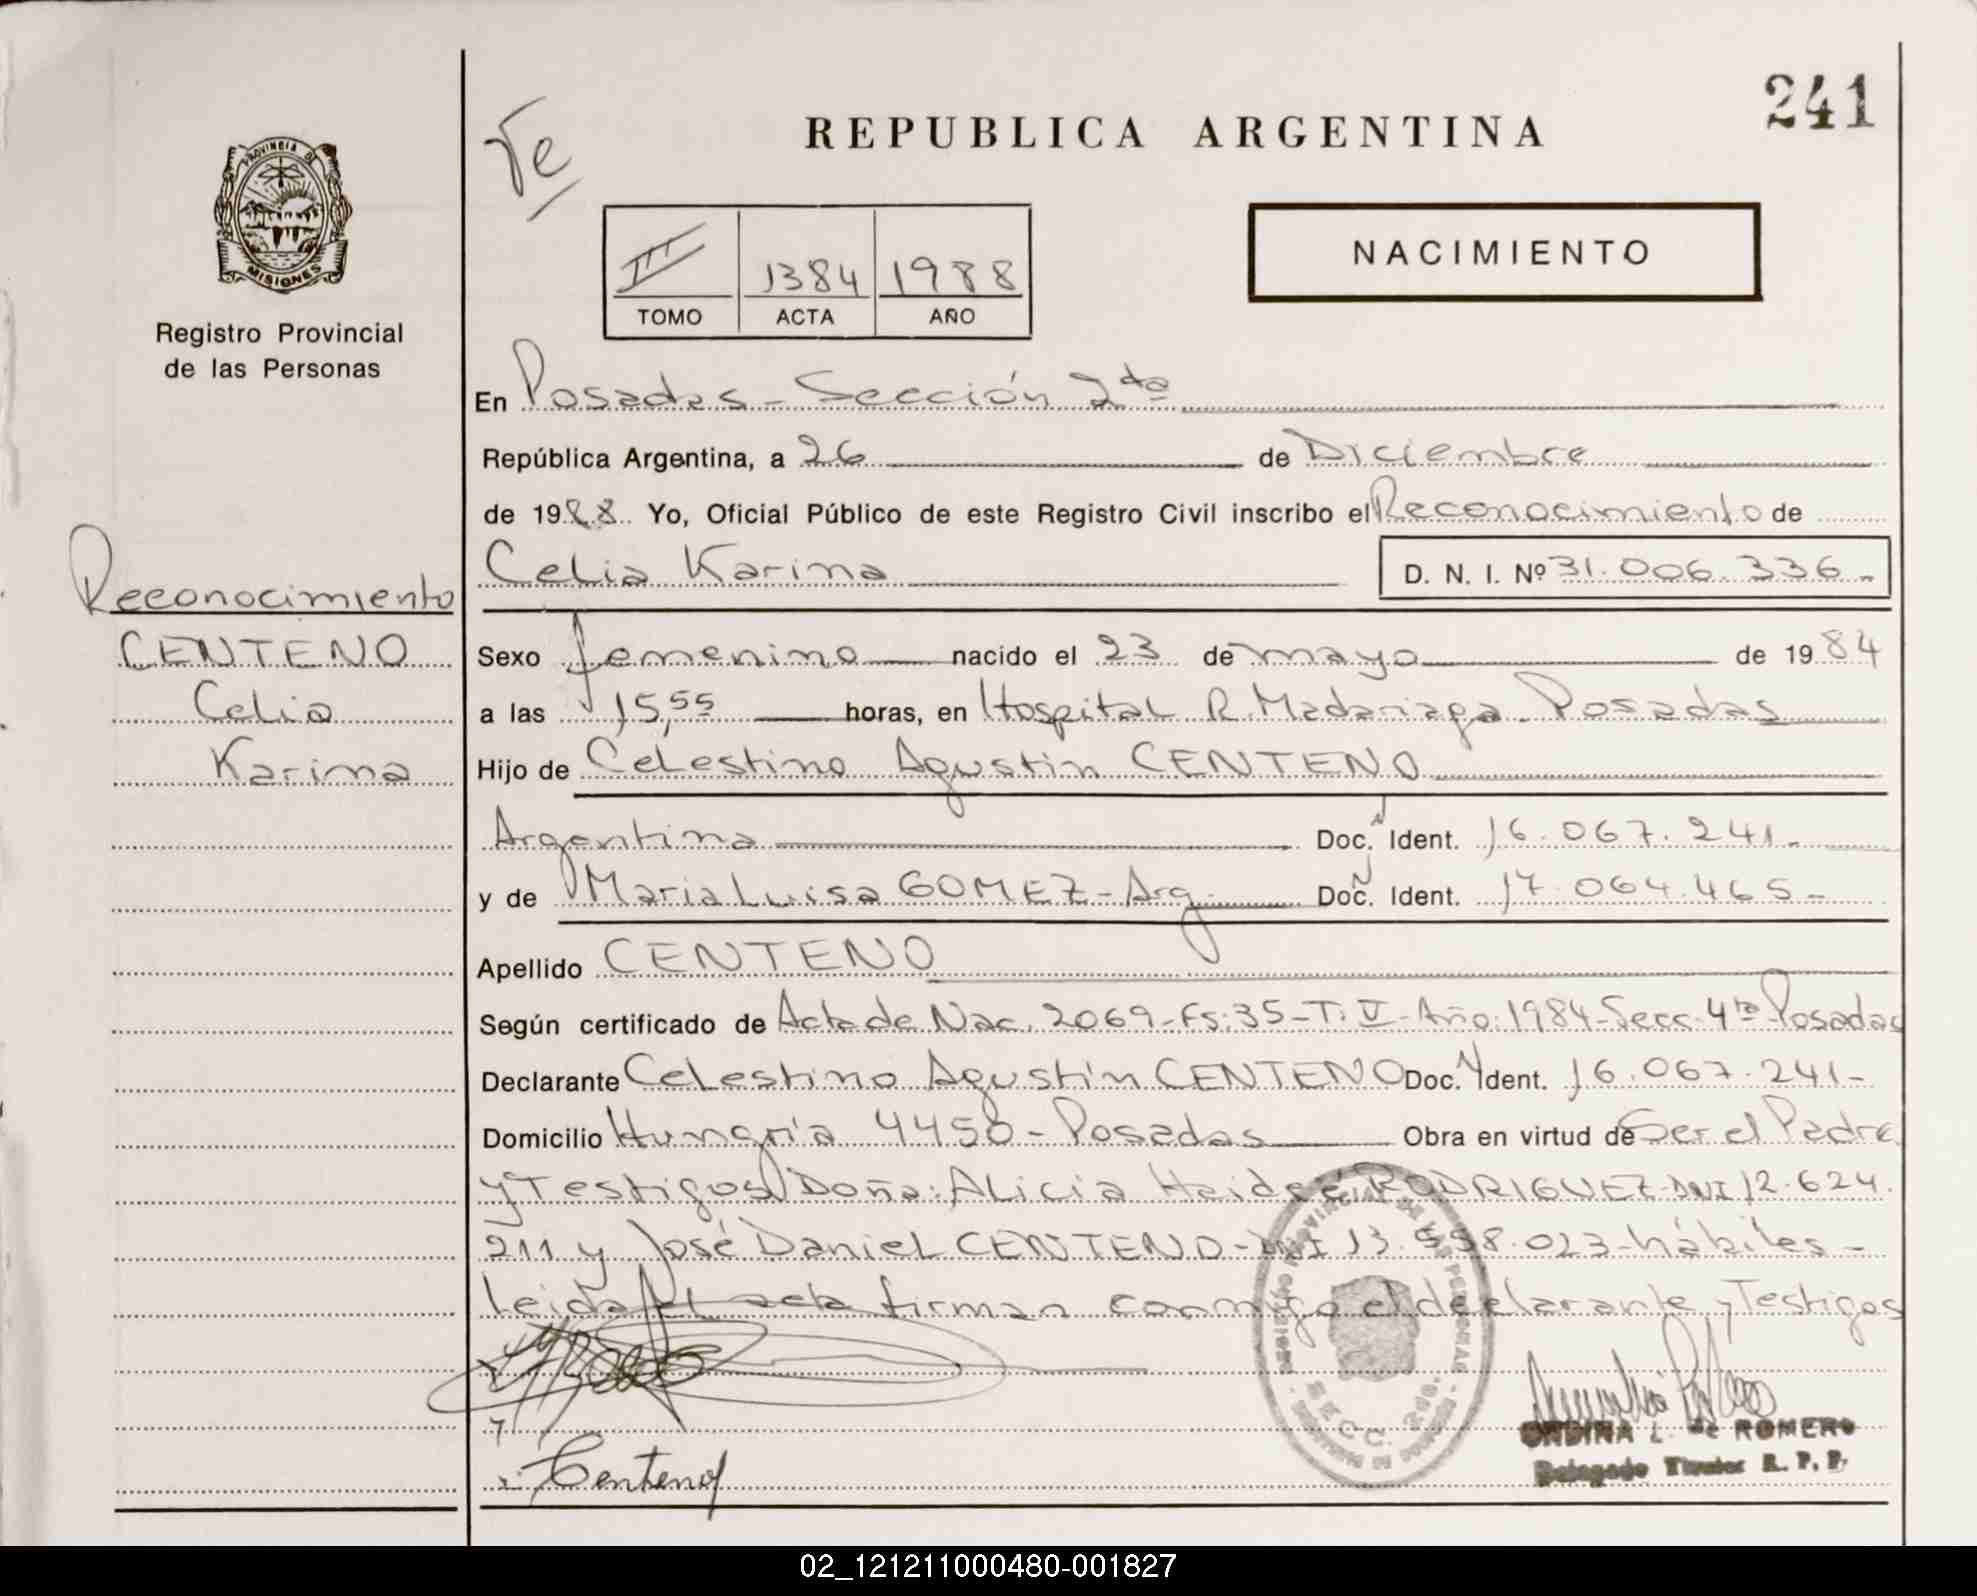 241
REPUBLICA ARGENTINA
PROVINCIA DE
MISIONES
Registro Provincial
de las Personas
III 1384 1988
TOMO ACTA AÑO
NACIMIENTO
En Posadas - Sección 2da
República Argentina, a 26 de Diciembre
de 1988. Yo, Oficial Público de este Registro Civil inscribo el Reconocimiento de
Celia Karina D. N. I. Nº 31.006.336-
Reconocimiento
CENTENO
Celia
Karina
Sexo femenino nacido el 23 de mayo de 1984
a las 15,55 horas, en Hospital R. Madariaga - Posadas
Hijo de Celestino Agustín CENTENO
Argentina Doc. N Ident. 16.067.241-
y de Maria Luisa GOMEZ - Arg. Doc. N Ident. 17.064.465-
Apellido CENTENO
Según certificado de Acta de Nac. 2069-Fs:35-T:V-Año:1984-Secc.4ta Posadas
Declarante Celestino Agustín CENTENO Doc. N Ident. 16.067.241-
Domicilio Hungría 4450 - Posadas Obra en virtud de Ser el Padre
y Testigos Doña: Alicia Haideé RODRIGUEZ-DNI 12.624.
211 y José Daniel CENTENO-DNI 13.558.023-hábiles-
Leida el acta firman conmigo el declarante y Testigos
Centeno
ORDINA L. de ROMERO
Delegado Titular R. P. P.
02_121211000480-001827